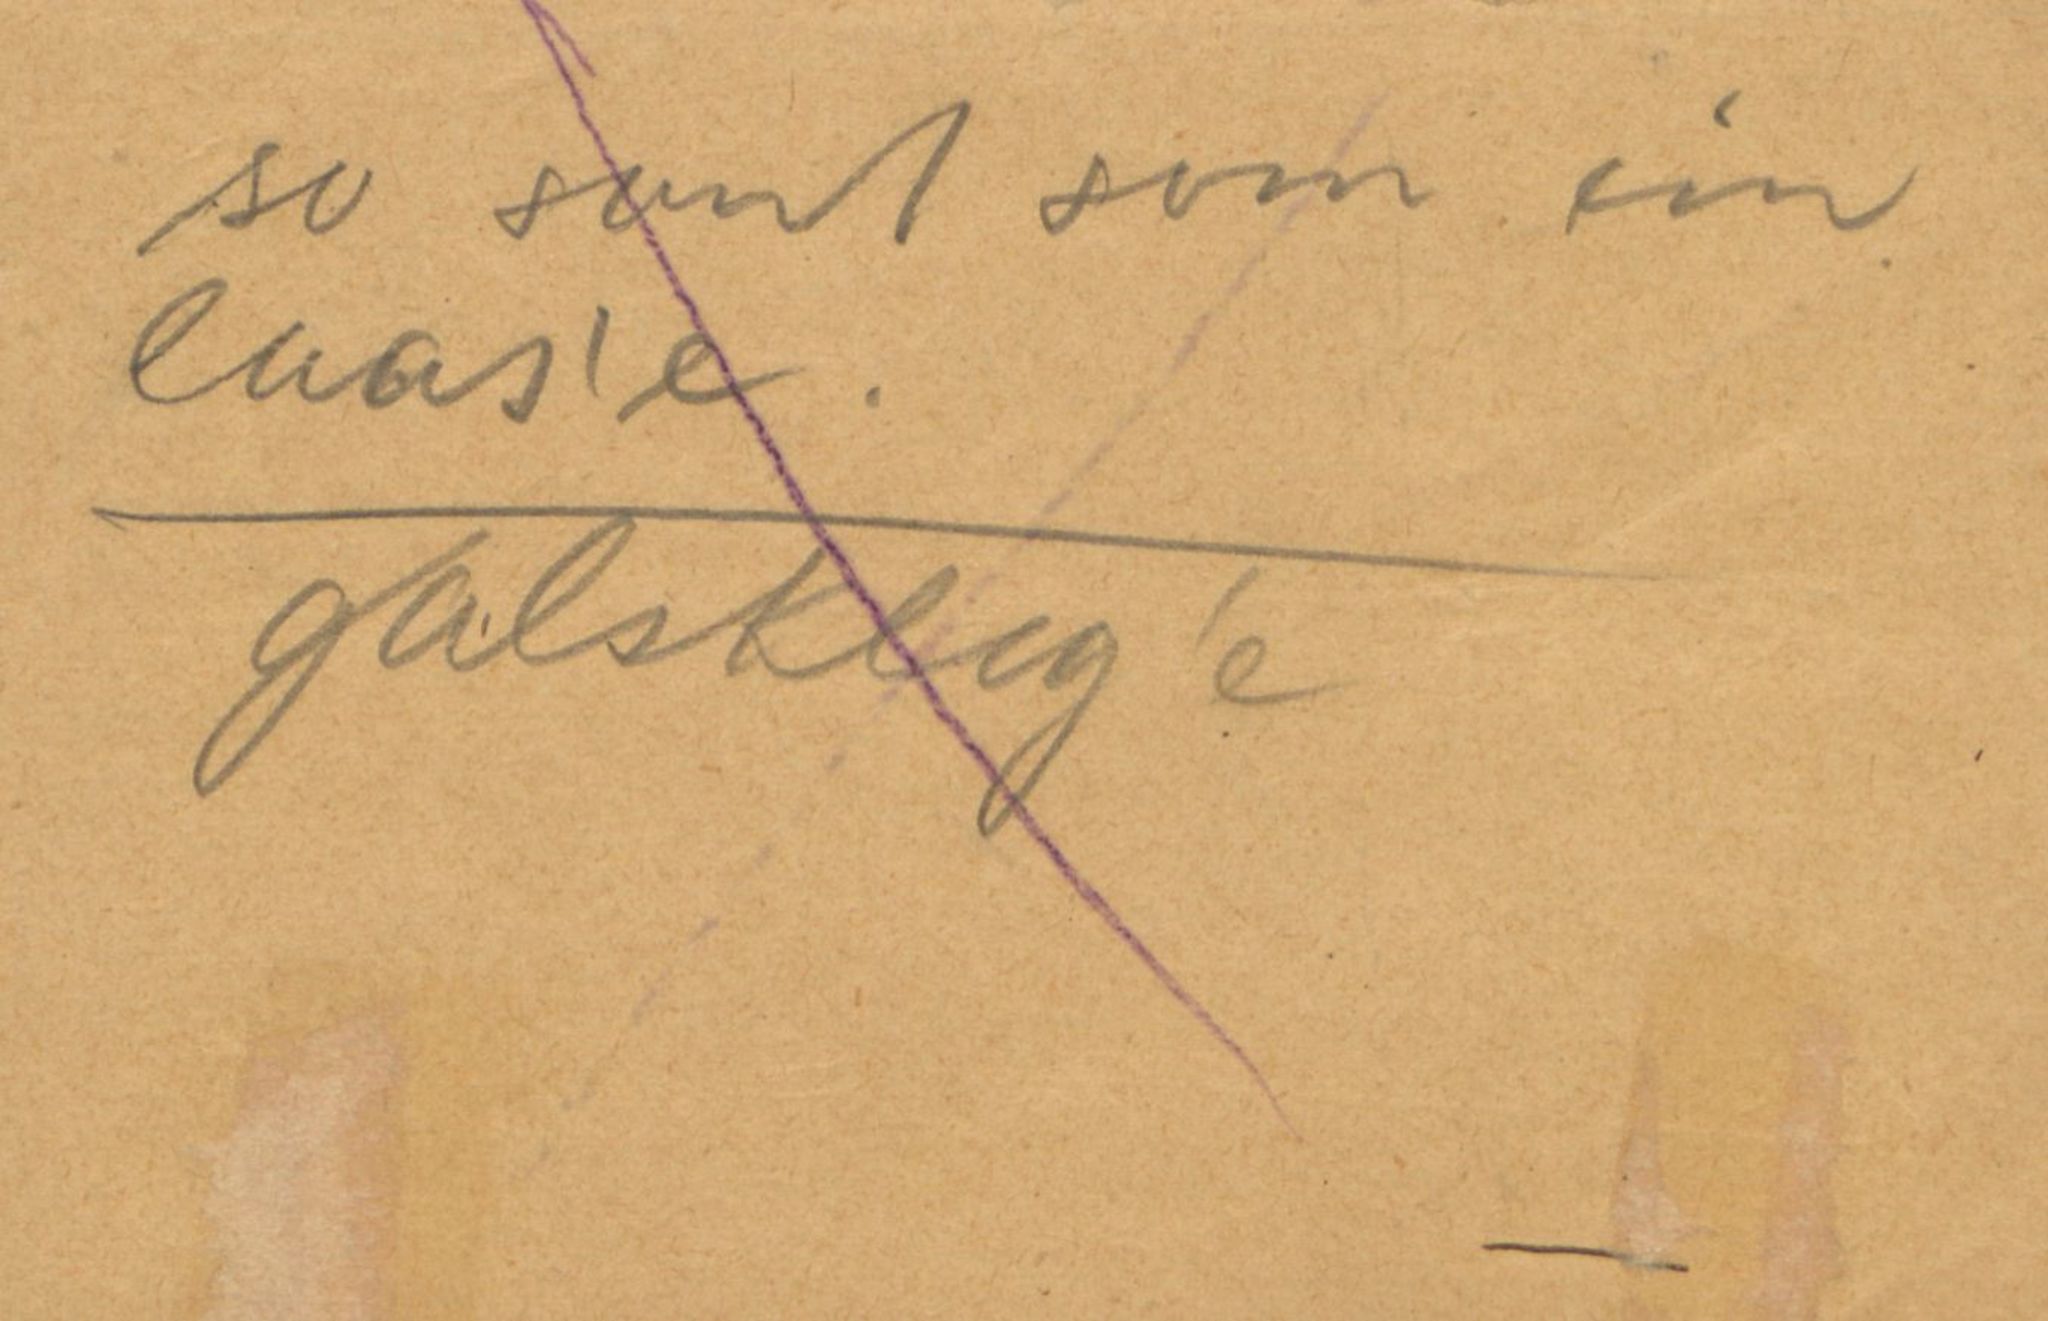 so sant som ein
laas'e.
galskleg'e